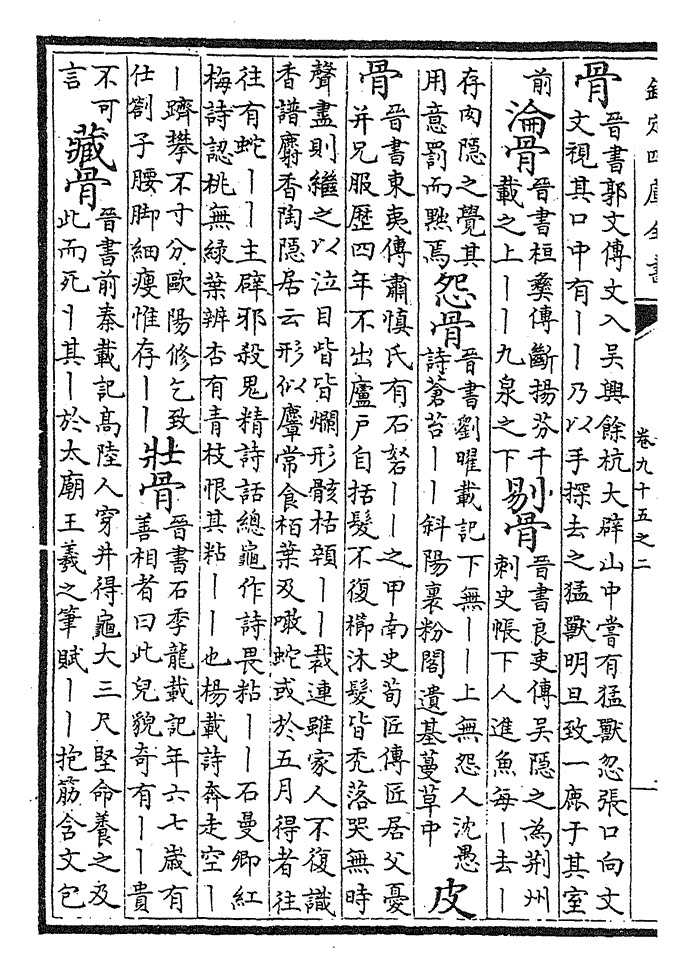 欽定四庫全書
卷九十五之二
一
骨
晉書郭文傳文入吳興餘杭大辟山中嘗有猛獸忽張口向文
文視其口中有丨丨乃以手探去之猛獸明旦致一鹿于其室
前
淪骨
晉書桓彝傳斷揚芬千
載之上丨丨九泉之下
剔骨
晉書良吏傳吳隱之為荆州
刺史帳下人進魚每丨去丨
存肉隱之覺其
用意罰而黜焉
怨骨
晉書劉曜載記下無丨丨上無怨人沈愚
詩蒼苔丨丨斜陽裏粉閣遺基蔓草中
皮
骨
晉書東夷傳肅慎氏有石砮丨丨之甲南史荀匠傳匠居父憂
并兄服歷四年不出廬戶自括髮不復櫛沐髮皆禿落哭無時
聲盡則繼之以泣目眥皆爛形骸枯顇丨丨裁連雖家人不復識
香譜麝香陶隱居云形似麞常食栢葉及噉蛇或於五月得者往
往有蛇丨丨主辟邪殺鬼精詩話總龜作詩畏粘丨丨石曼卿紅
梅詩認桃無綠葉辨杏有青枝恨其粘丨丨也楊載詩奔走空丨
丨躋攀不寸分歐陽修乞致
仕劄子腰脚細瘦惟存丨丨
壯骨
晉書石季龍載記年六七歲有
善相者曰此兒貌奇有丨丨貴
不可
言
藏骨
晉書前秦載記高陸人穿井得龜大三尺堅命養之及
此而死丨其丨於太廟王羲之筆賦丨丨抱筋含文包